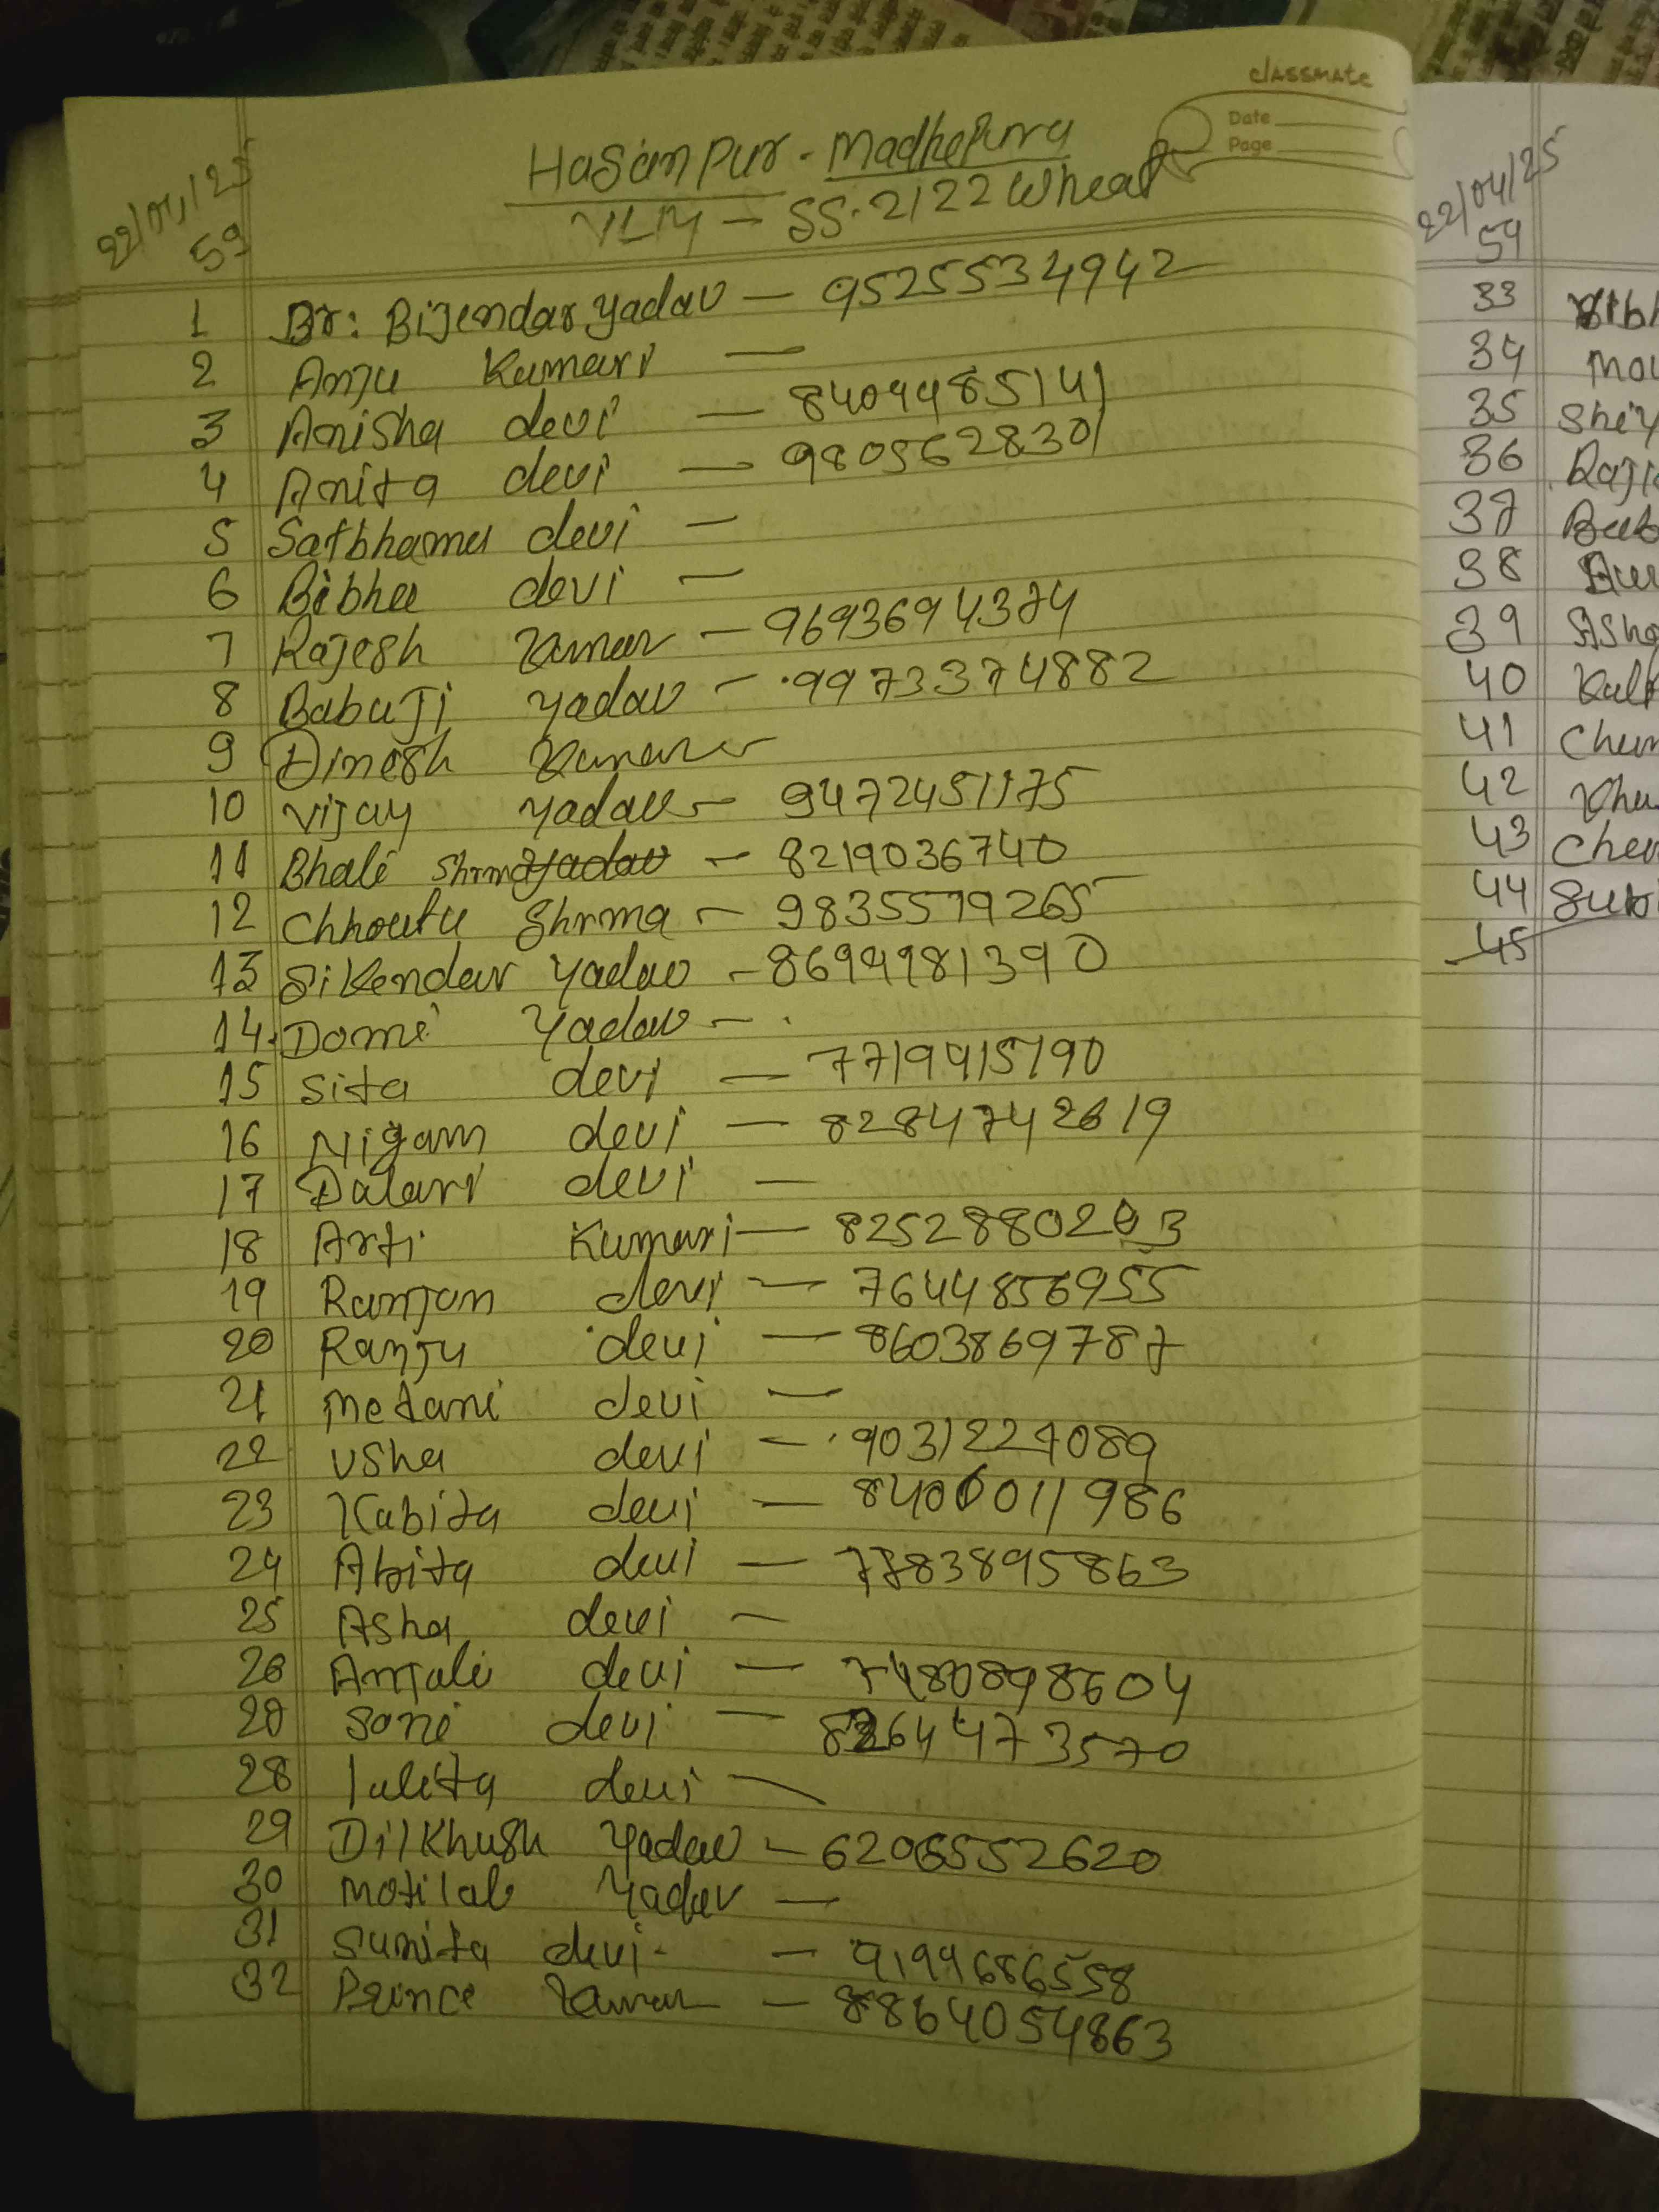 classmate
Date
Page
22/04/25
59
Hasanpur - Madhepura
VLM - SS-2122 Wheat
1 Br: Bijendar yadav - 9525534942
2 Anju Kumari -
3 Anisha devi - 8409485141
4 Anita devi - 9805628301
5 Satbhama devi -
6 Bibha devi -
7 Rajesh Kumar - 9693694374
8 Babuji yadav - 9973374882
9 Dinesh Kumar -
10 Vijay yadav - 9472451175
11 Bhali Shrma yadav - 8219036740
12 Chhoutu Shrma - 9835579265
13 Sikendar yadav - 8694981390
14. Domi yadav -
15 Sita devi - 7719415190
16 Nigam devi - 8284742619
17 Dalari devi -
18 Arti Kumari - 8252880203
19 Ranjan devi - 7644856955
20 Ranju devi - 8603869787
21 metani devi -
22 Usha devi - 9031227089
23 Kabita devi - 8400011986
24 Abita devi - 7783895863
25 Asha devi -
26 Anjali devi - 7480898604
20 Soni devi - 8264473570
28 lalita devi -
29 Dilkhush Yadav - 6206552620
30 motilal Yadav -
31 Sunita devi - 9199686558
32 Prince Kumar - 8864054863
22/04/25
59
33
34
35
36
37
38
39
40
41
42
43
44
45